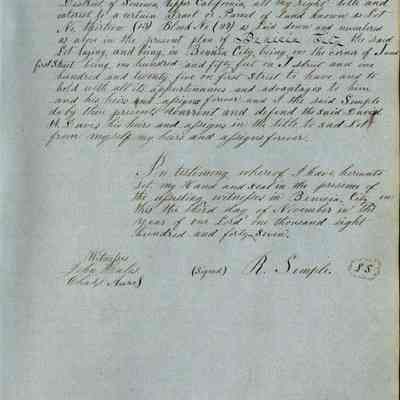 District of Sonoma Upper California, all my Right title and
interest to a certain Tract or Parcel of Land known as Lot
No. Thirteen (13) Block No. as laid down and numbered
as above in the present plan of Benicia City the said
Lot laying, and being, in Benicia City, being, on the corner of I and
first Street being one hundred and fifty feet on I street and one
hundred and twenty five on first Street to have and to
hold with all its appurtenances and advantages to him
and his heirs and assigns forever and I the said Semple
do by these presents Warrant and defend the said David
W. Davis his heirs and assigns in the title to said Lot
from myself my heirs and assigns forever.
In testimony whereof I have hereunto
Set my Hand and Seal in the presence of
the attesting witnesses in Benicia City on
this the third day of November in the
year of our Lord one thousand eight
hundred and forty-seven.
Witnesses
John
Charles
(Signed) R. Semple. SS